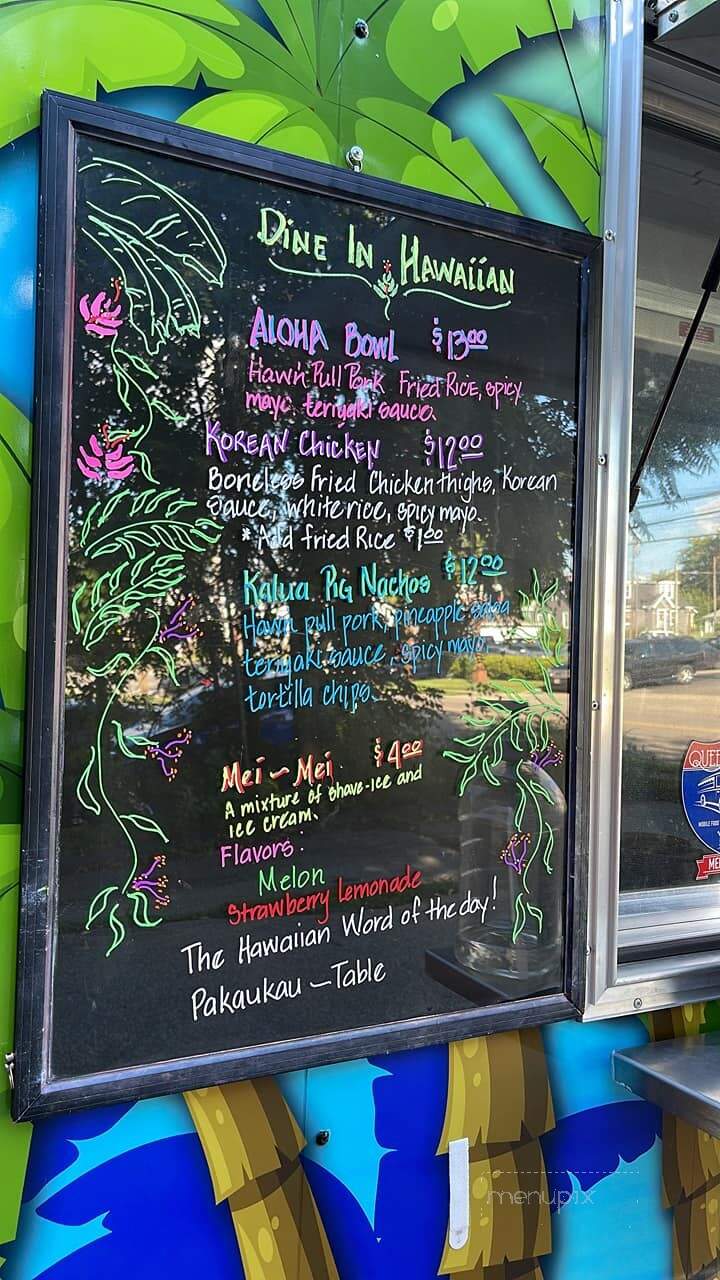 Dine In Hawaiian
Aloha Bowl $13.00
Haw'n Pull Pork Fried Rice, spicy
mayo teriyaki sauce.
Korean Chicken $12.00
Boneless Fried Chicken thighs, Korean
Sauce, white rice, spicy mayo.
* Add fried Rice $1.00
Kalua Pig Nachos $12.00
Haw'n pull pork, pineapple salsa
teriyaki sauce, spicy mayo,
tortilla chips.
Mei-Mei $4.00
A mixture of shave-ice and
ice cream.
Flavors:
Melon
Strawberry Lemonade
The Hawaiian Word of the day!
Pakaukau - Table
QUEE
MOBILE FOOD
ME
menupix